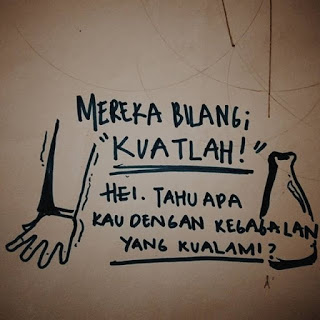 MEREKA BILANG;
"KUATLAH!"
HEI. TAHU APA
KAU DENGAN KEGAGALAN
YANG KUALAMI?